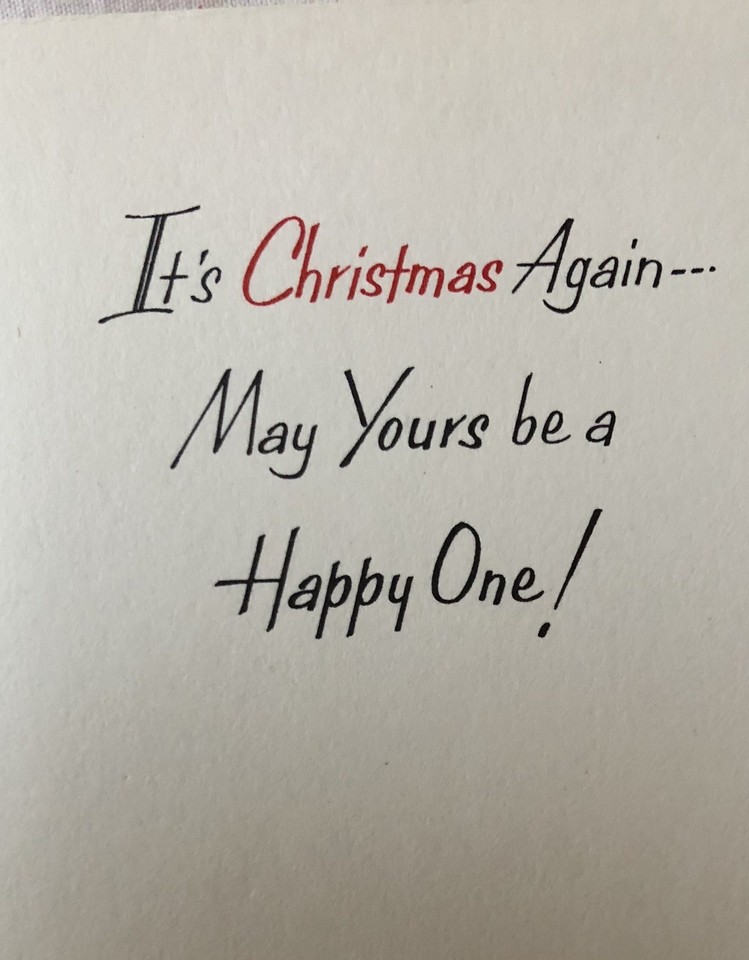 It's Christmas Again---
May Yours be a
Happy One!